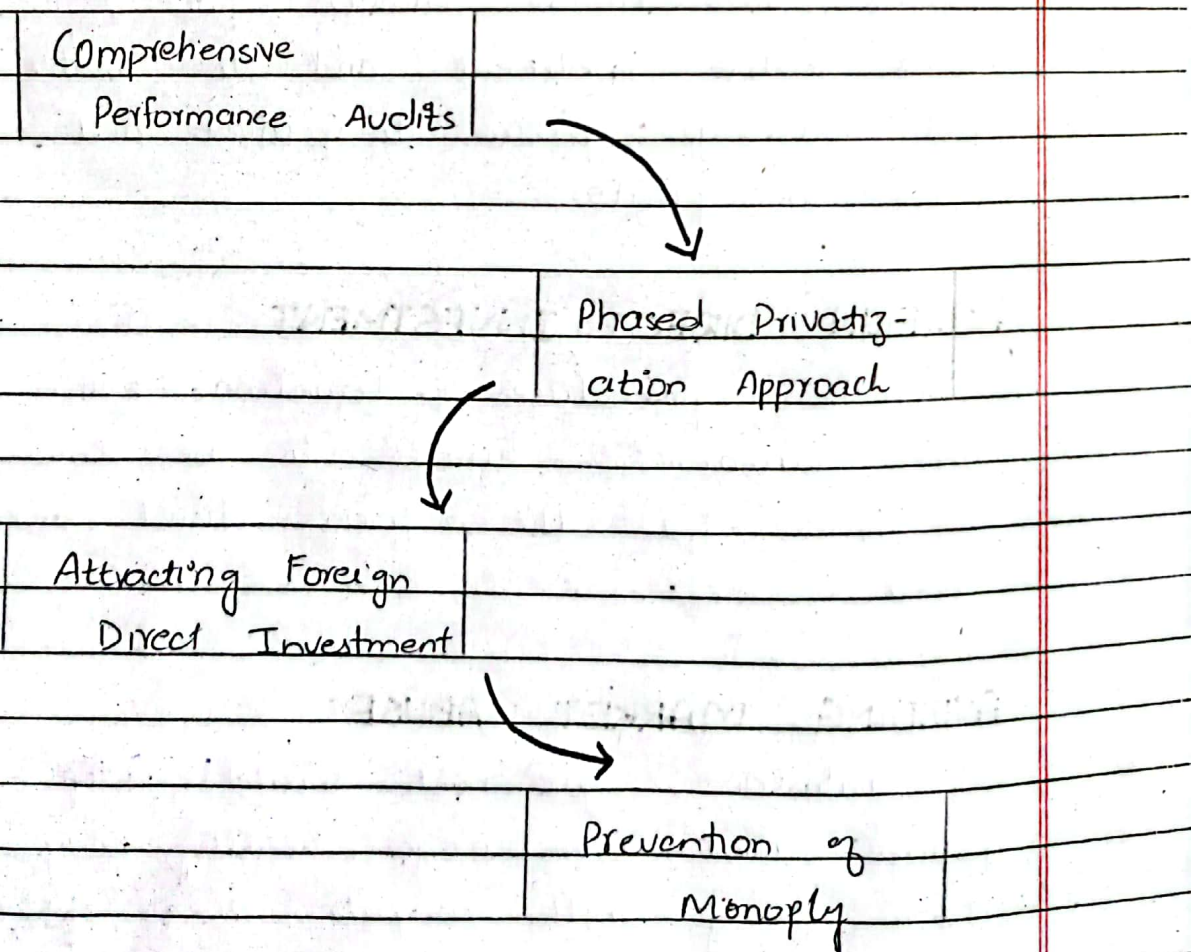 Comprehensive
Performance Audits
Phased Privatiz-
ation Approach
Attracting Foreign
Direct Investment
Prevention of
Monoply